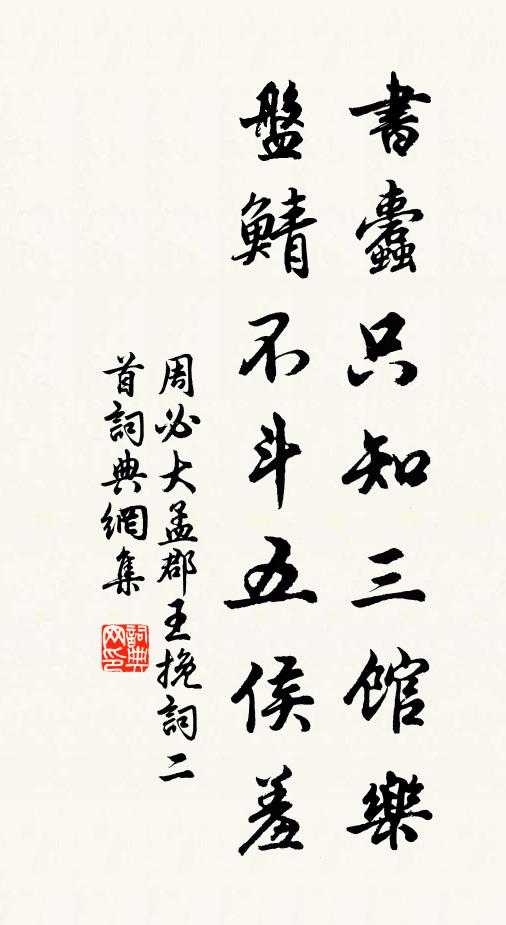 書蠹只知三馆樂
盤鯖不斗五侯羞
周必大孟郡王挽詞二
首詞典網集
詞典
网印